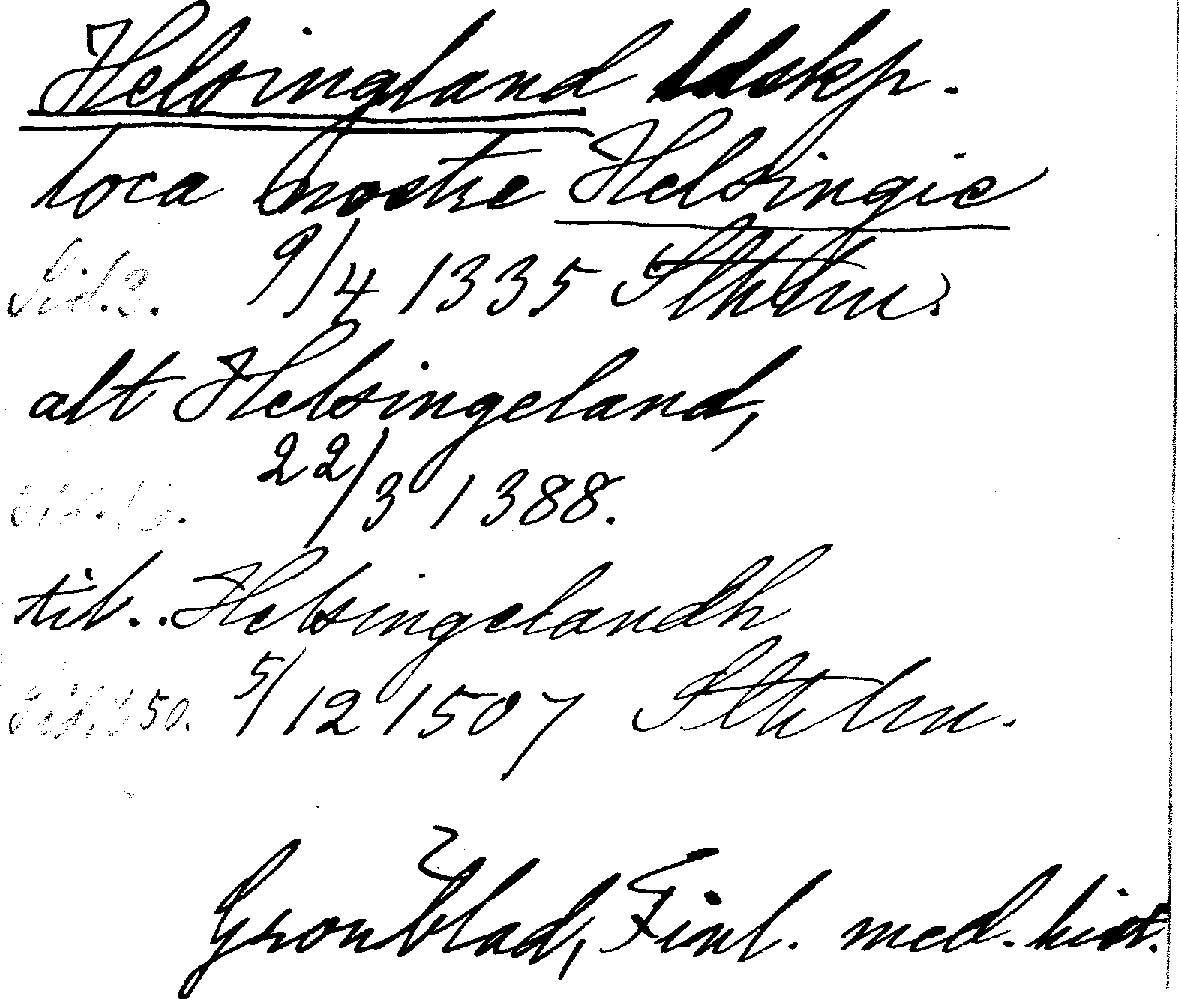 Helsingland ldskp.
loca nostre Helsingie
Sid. 3. 9/4 1335 Sthlm.
alt Helsingeland,
22/3 1388.
til.. Helsingelandh
5/12 1507 Sthlm.
Grönblad, Finl. med. hist.